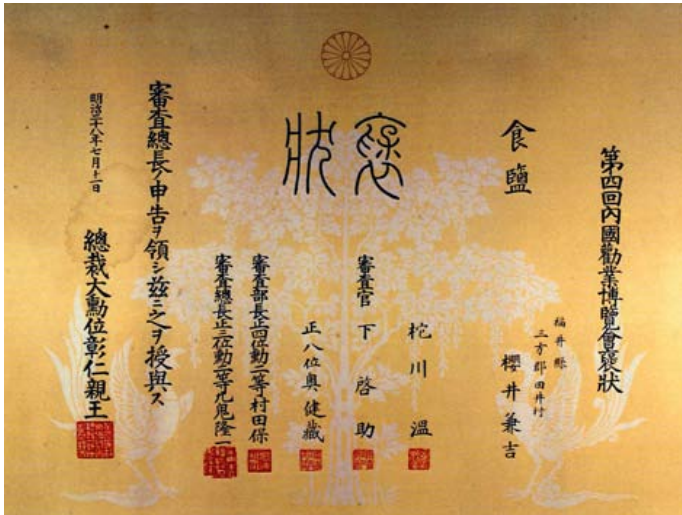 第四回內國勸業博覽會褒狀
福井縣
三方郡田井村
櫻井兼吉
食鹽
褒狀
柁川溫
審查官下啓助
正八位奥健藏
審查部長正四位勳二等村田保
審查總長正三位勳二等九鬼隆一
審查總長ノ申告ヲ領シ玆ニ之ヲ授與ス
明治二十八年七月十一日
總裁大勳位彰仁親王